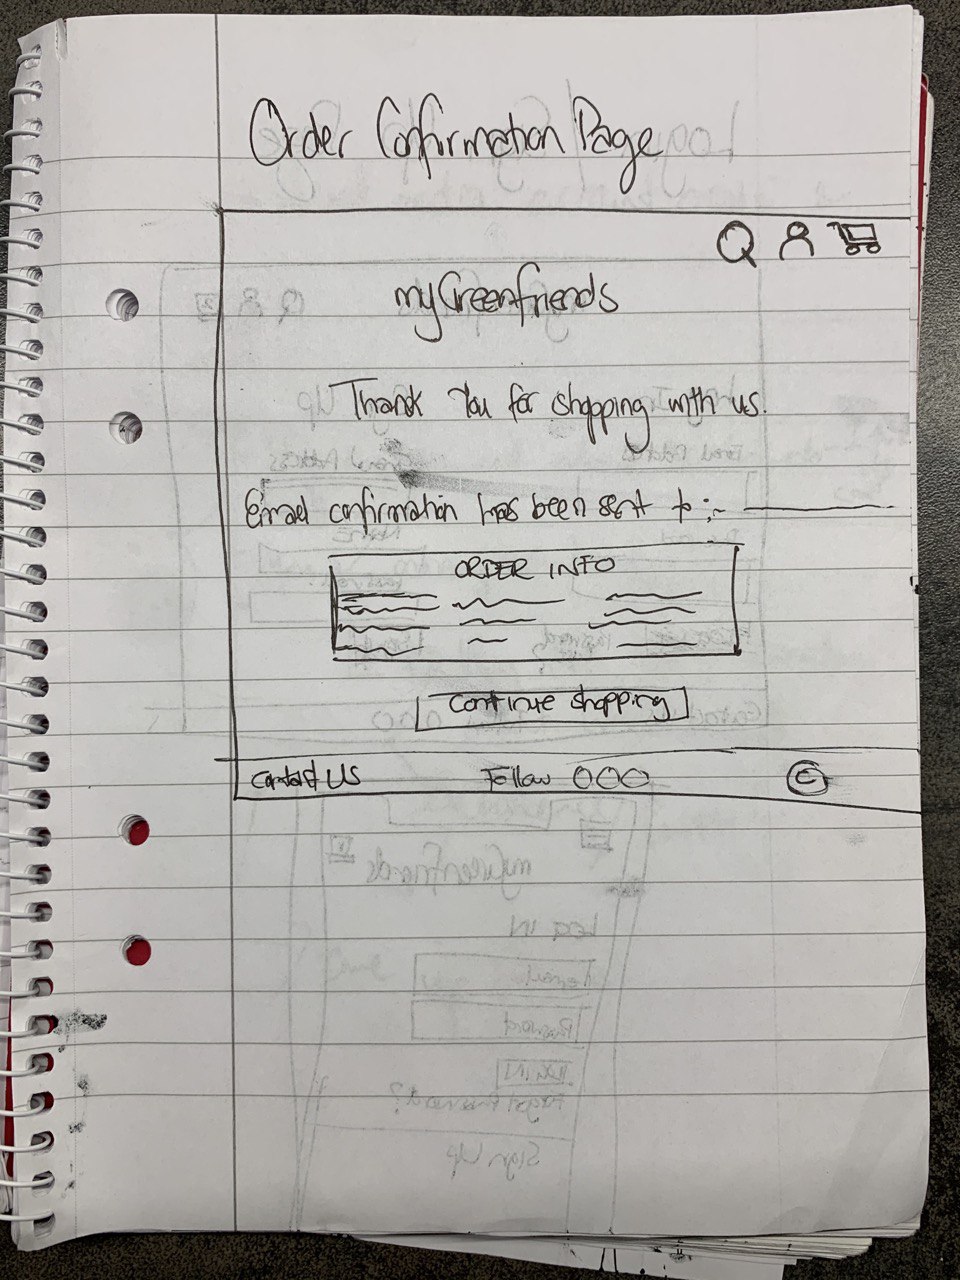 Order Confirmation Page
myGreenfriends
Thank You for shopping with us.
Email confirmation has been sent to :-
ORDER INFO
Continue shopping
Contact Us
Follow
©